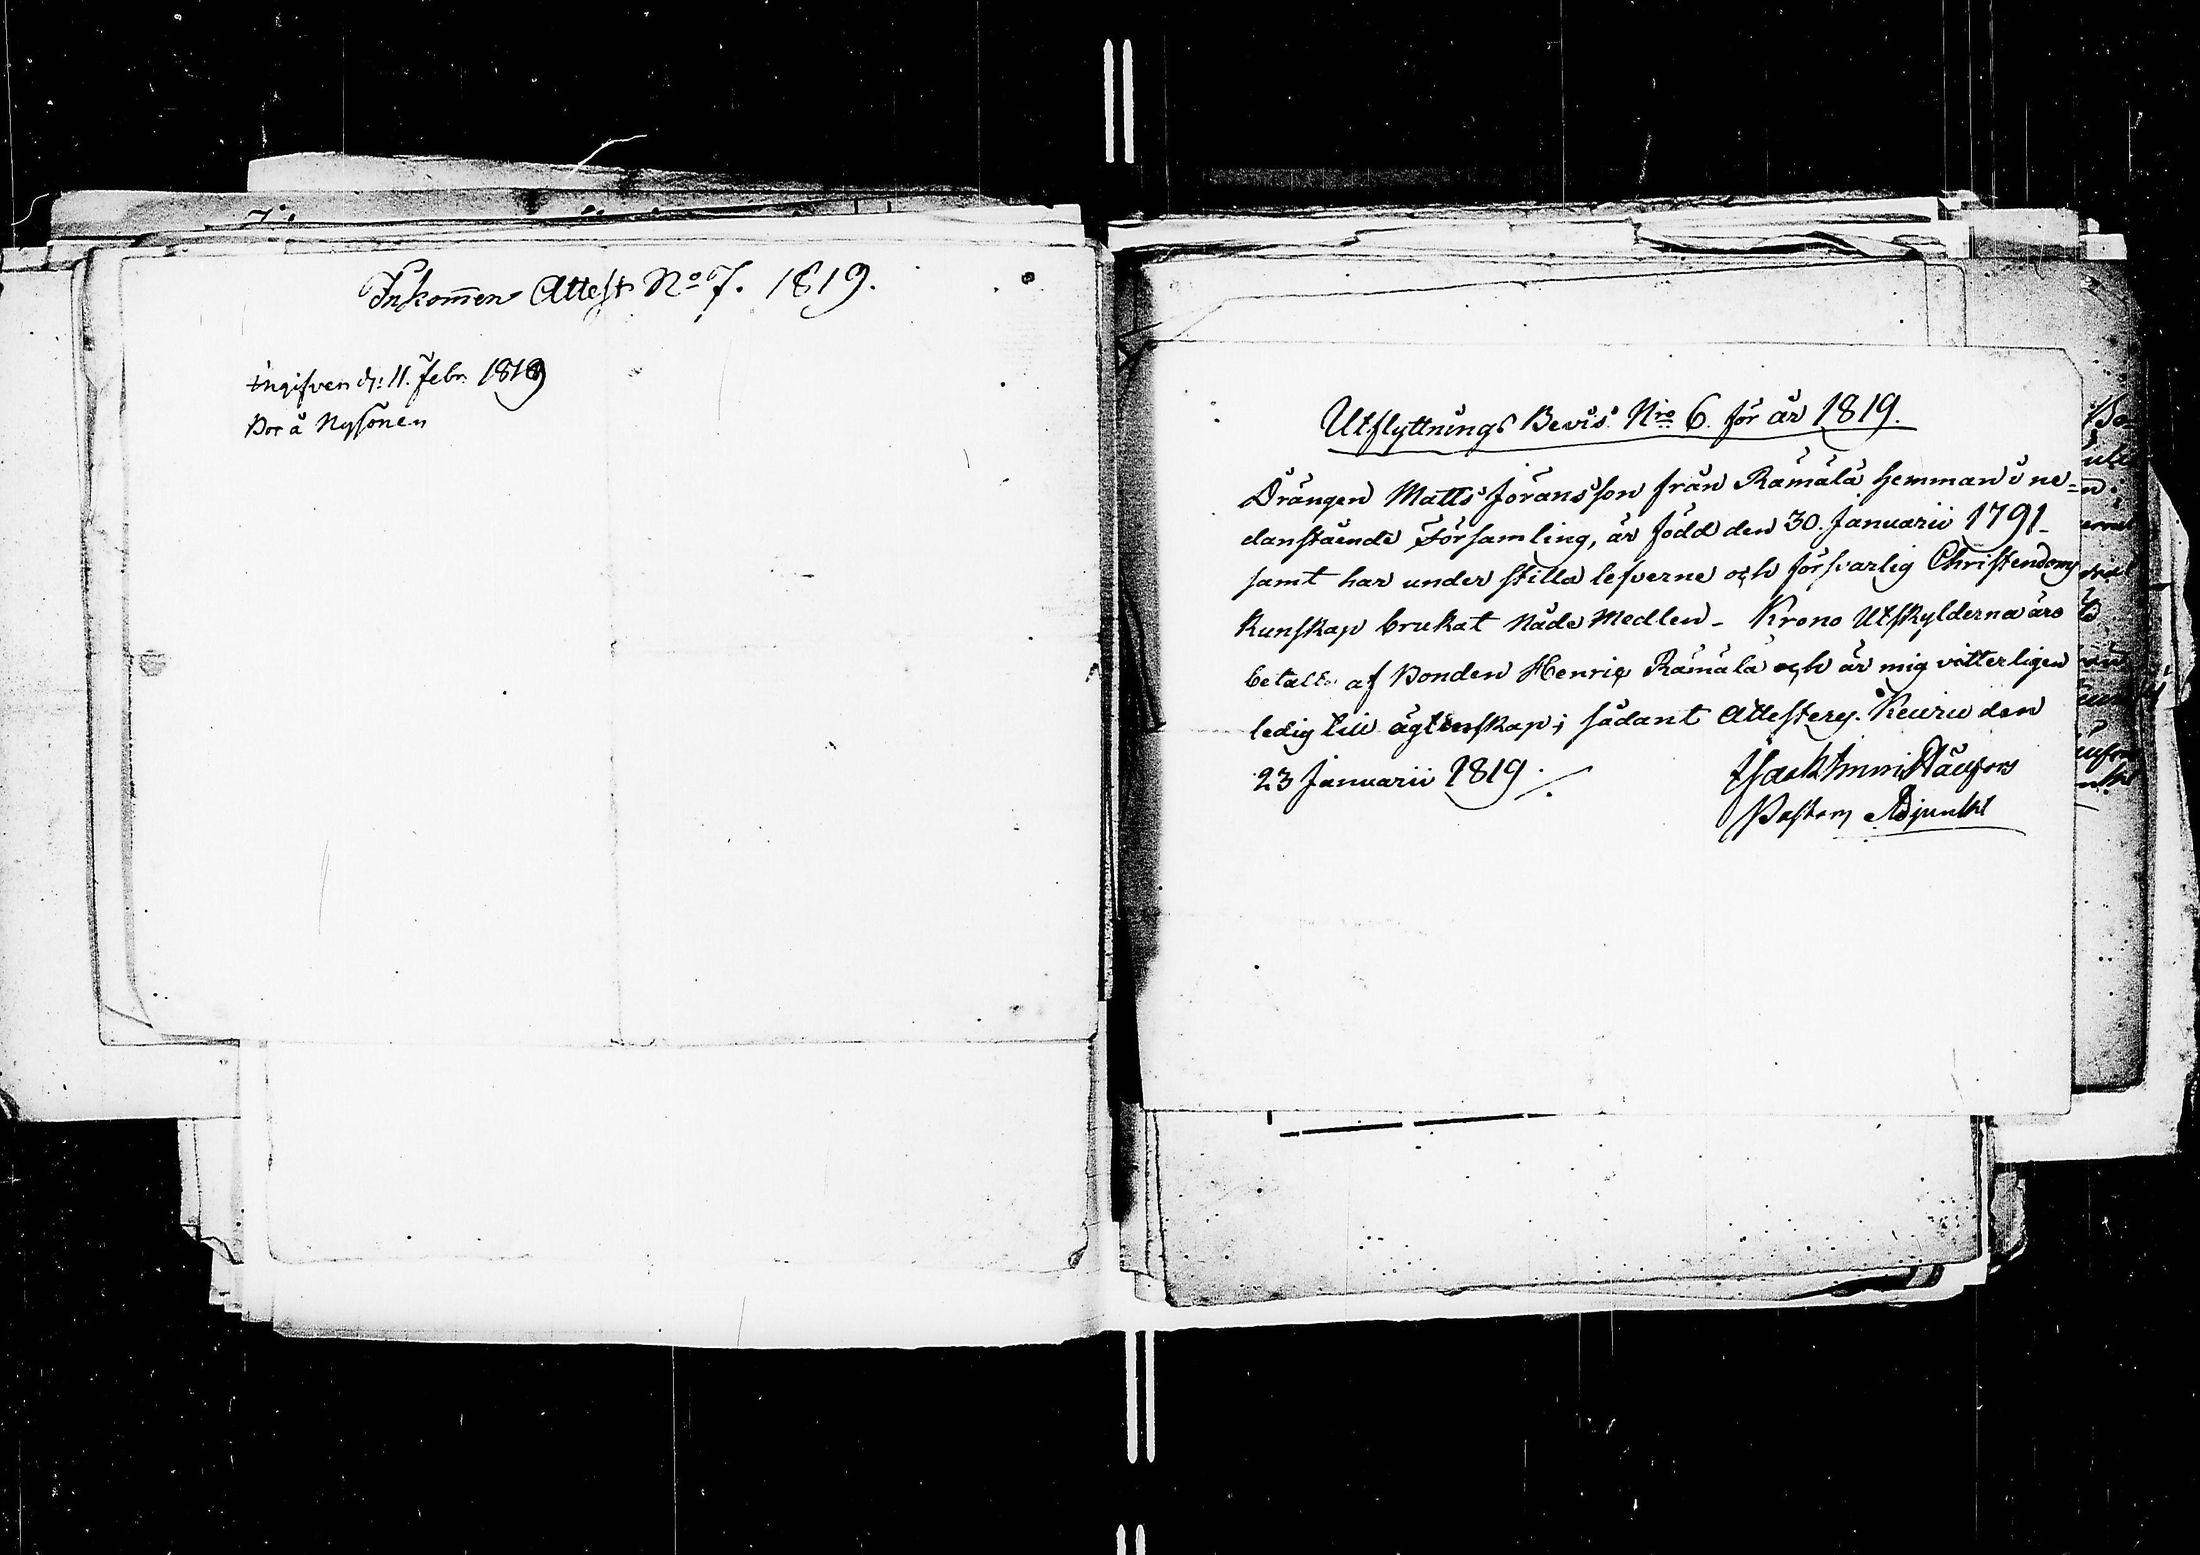 Inkom̄en Attest No 7. 1819.
ingifven d: 11. Febr. 1819
Bor å Nysönen
Utflyttnings Bevis Nro 6. för år 1819.
Drängen Matts Jöransson från Rämälä hemman i ne=
danstående Församling, är född den 30. Januarii 1791_
samt har under stilla lefverne och försvarlig Christendoms
kunskap brukat Nåde Medlen_ Krono Utskylderna äro
betalte af Bonden Henric Rämälä och är mig vitterligen
ledig till ägtenskap; sådant Attesterg. Keuru den
23 Januarii 1819
Pastors Adjunkt